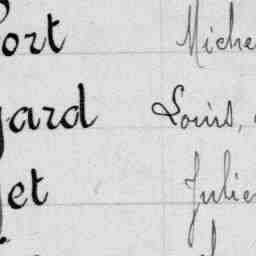 ort Miche
gard Louis,
et Julie